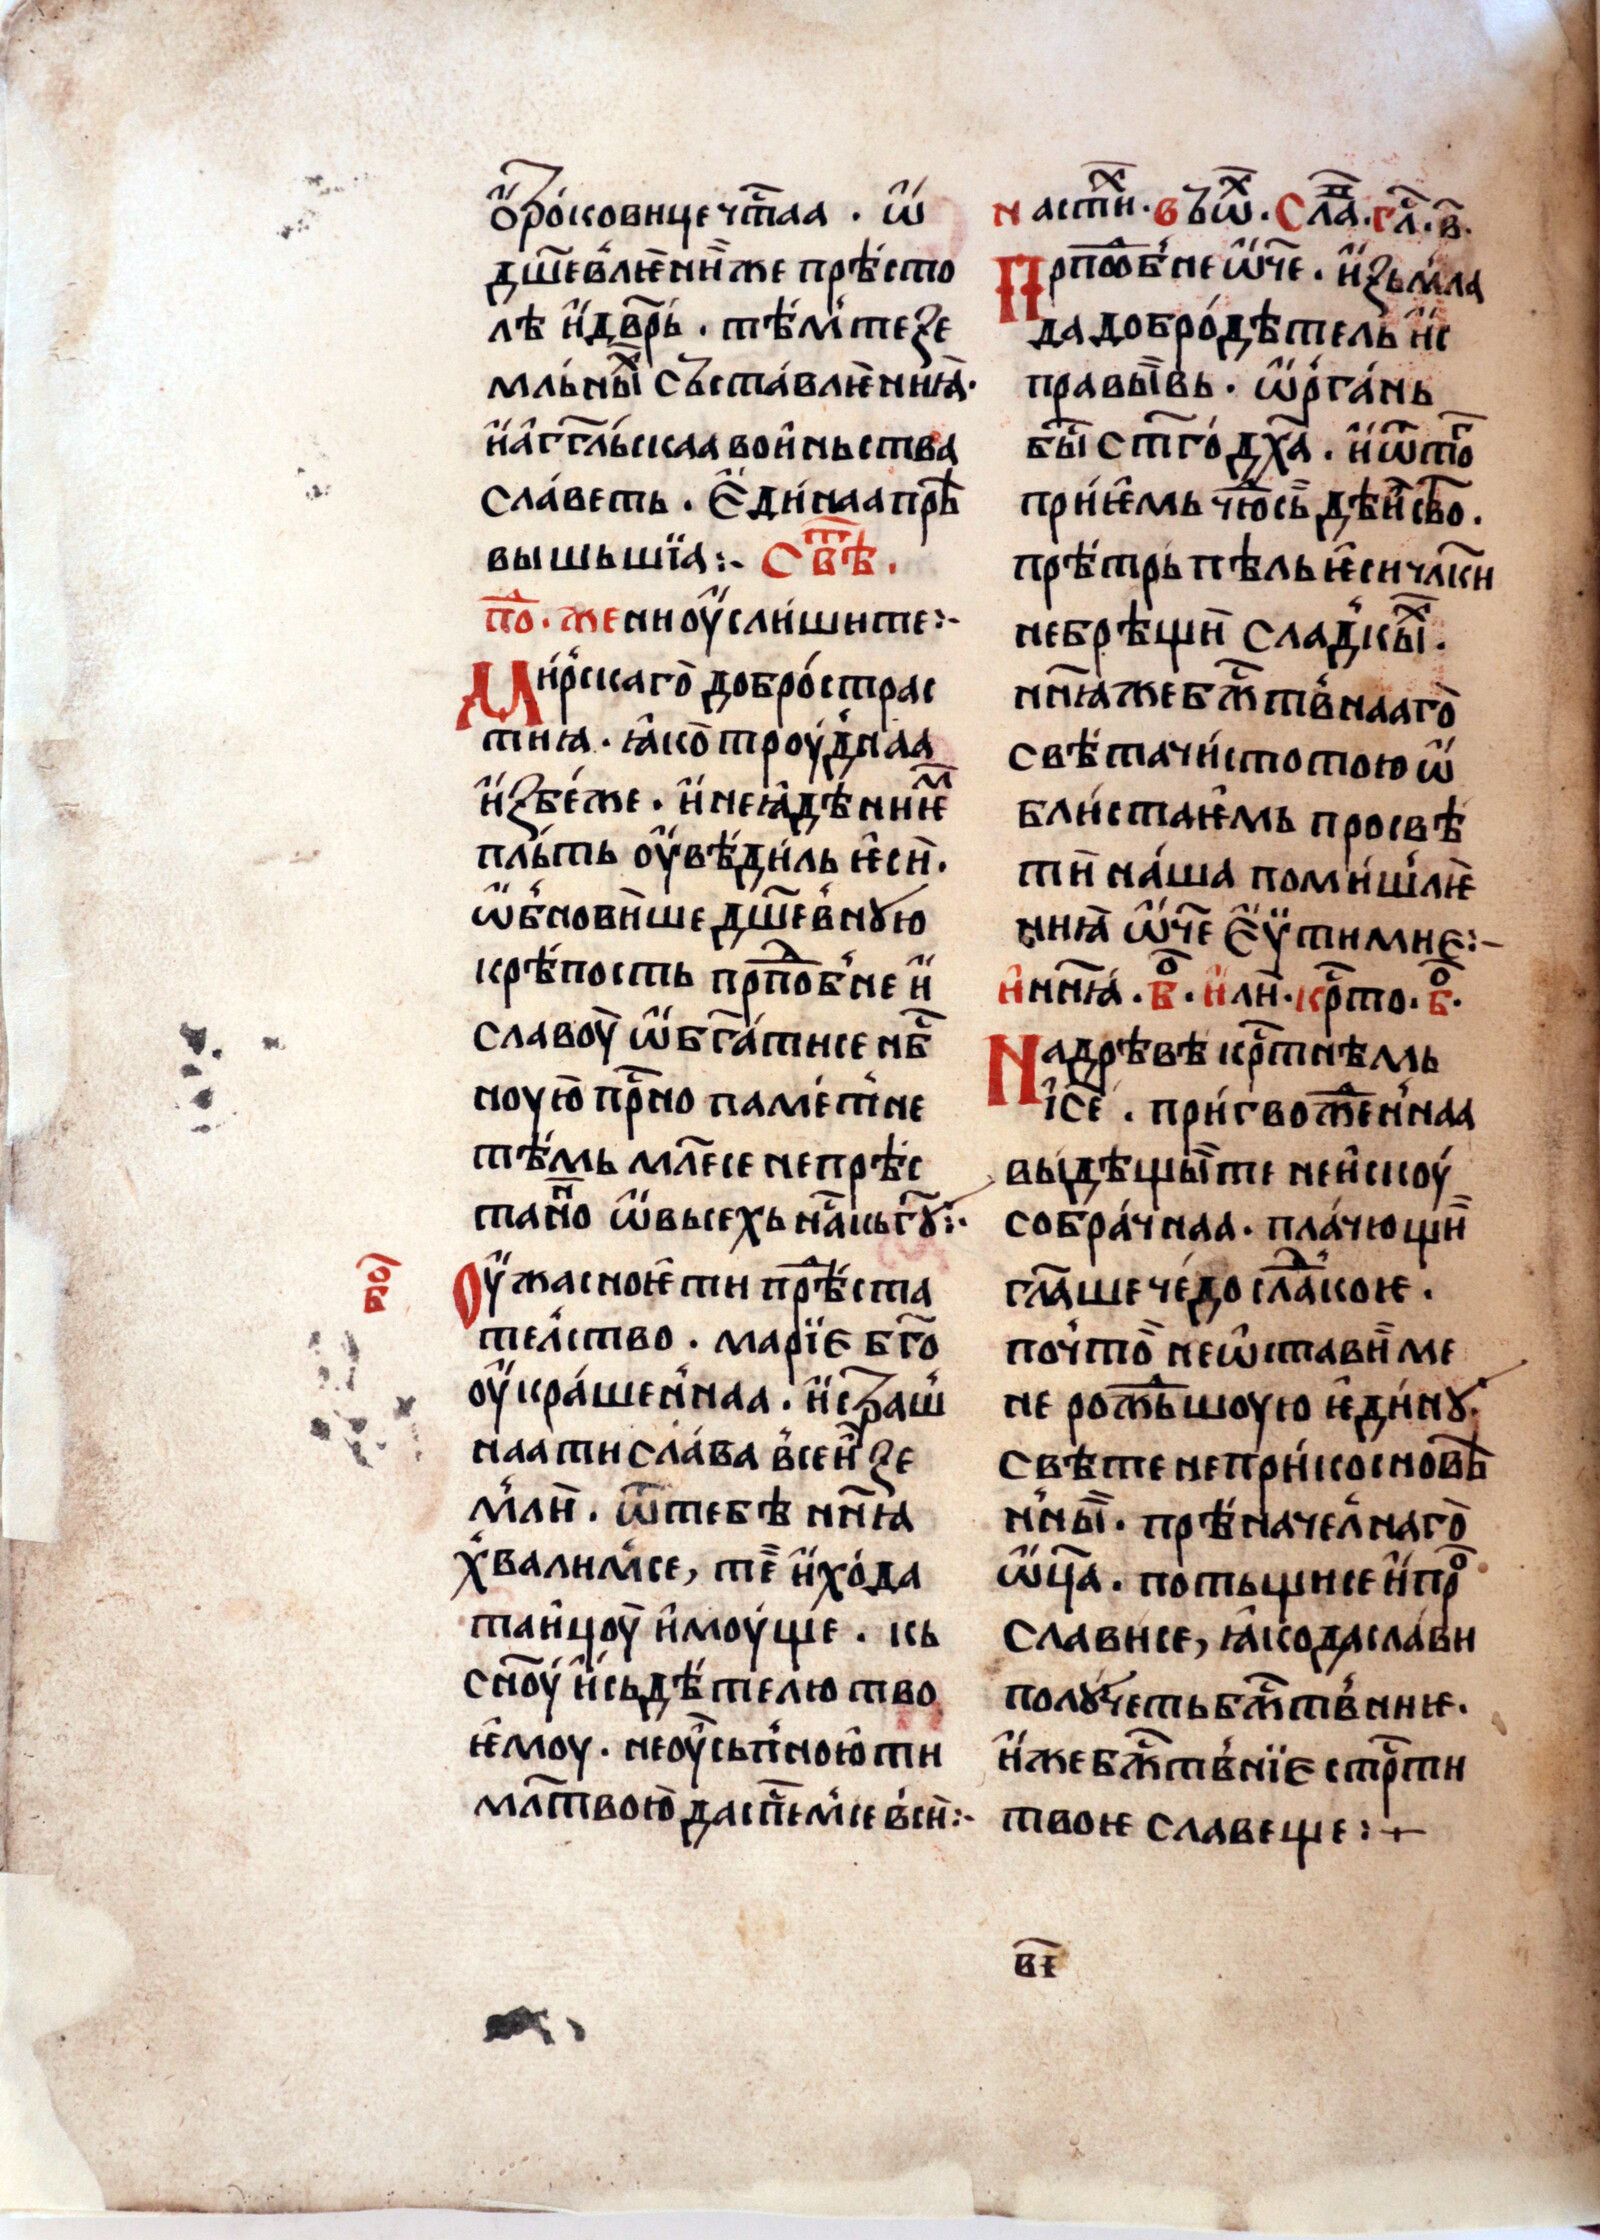 ѻ҆троковице чⷭ҇таа · ѡ҆
дш҃евлѥнни же прѣсто
лѣ и҆ двⷬ҇ьри · тѣмь те зе
мльныⷯ съставлѥниꙗ ·
и҆ а҆гг҃льскаа воиньства
славеть · Є҆динаа прѣ
вышьшїа :~ Свѣⷮ ·
Поⷣ · жени оу҆слишите :~
Мирскаго добрострас
тиꙗ · ꙗ҆ко троуднаа
и҆збеже · и҆ неꙗдѣниѥⷨ
пльть оу҆вѣдиль ѥ҆си ·
ѡ҆бновивше дш҃евнꙋю
крѣпость прⷣпⷪ҇бне и҆
славоу ѡ҆бг҃атисе нбⷭ҇
ноую прⷭ҇но паметне
тѣмь млⷭ҇есе непрѣс
танⷩ҇о ѡ҆ вьсехь нⷭ҇а кь гꙋⷭ҇ :·
боⷢ
Оу҆жасноѥ ти прⷣѣста
телство · марїе бг҃о
оу҆крашеннаа · и҆страш
наа ти слава всеи зе
мли · ѿ тебѣ нн҃ꙗ
хвалимсе, те и҆хода
таицоу и҆моуще · кь
сн҃оу и҆ сьдѣтелю тво
ѥ҆моу · неоу҆сьпною ти
млⷭ҇твою да спⷭ҇емсе вси :~
на стиⷯ · в ъѡⷯ · Слаⷡ · глⷭ҇ · в҃ ·
Прⷣпⷪ҇бне ѡ҆ч҃е · и҆зьмла
да добродѣтель и҆с
правывь · ѡ҆ргань
бы҃ ст҃го дх҃а · и҆ ѿтоⷢ
приѥмь чюⷣсь дѣиство ·
прѣтрьпѣль ѥ҆си члⷡки
небрѣщи сладкыⷯ ·
нн҃ꙗ же бжⷭ҇твнааго
свѣта чистотою ѡ҆
блистаѥмь просвѣ
ти наша помишлѥ
ниꙗ ѡ҆ч҃е Є҆ѵтимие :~
И нн҃ꙗ · боⷢ · и҆ли · крⷭ҇то · боⷢ ·
На дрѣвѣ крⷭ҇тнѣмь
і҆с҃е · пригвожⷣеннаа
выдѣщы те не и҆скоу
собрачнаа · плачющи
гл҃аше чедо слаⷣкоѥ ·
почто не ѡ҆стави ме
не рожⷣьшоую ѥ҆динꙋ ·
Свѣте неприкоснове
нны · прѣначелнаго
ѡ҆ц҃а · потьщисе и҆ проⷭ
слависе, ꙗ҆ко да слави
полꙋчеть бжⷭ҇твниѥ ·
и҆же бжⷭ҇твнїе стрⷭ҇ти
твоѥ славеще : +
в҃і